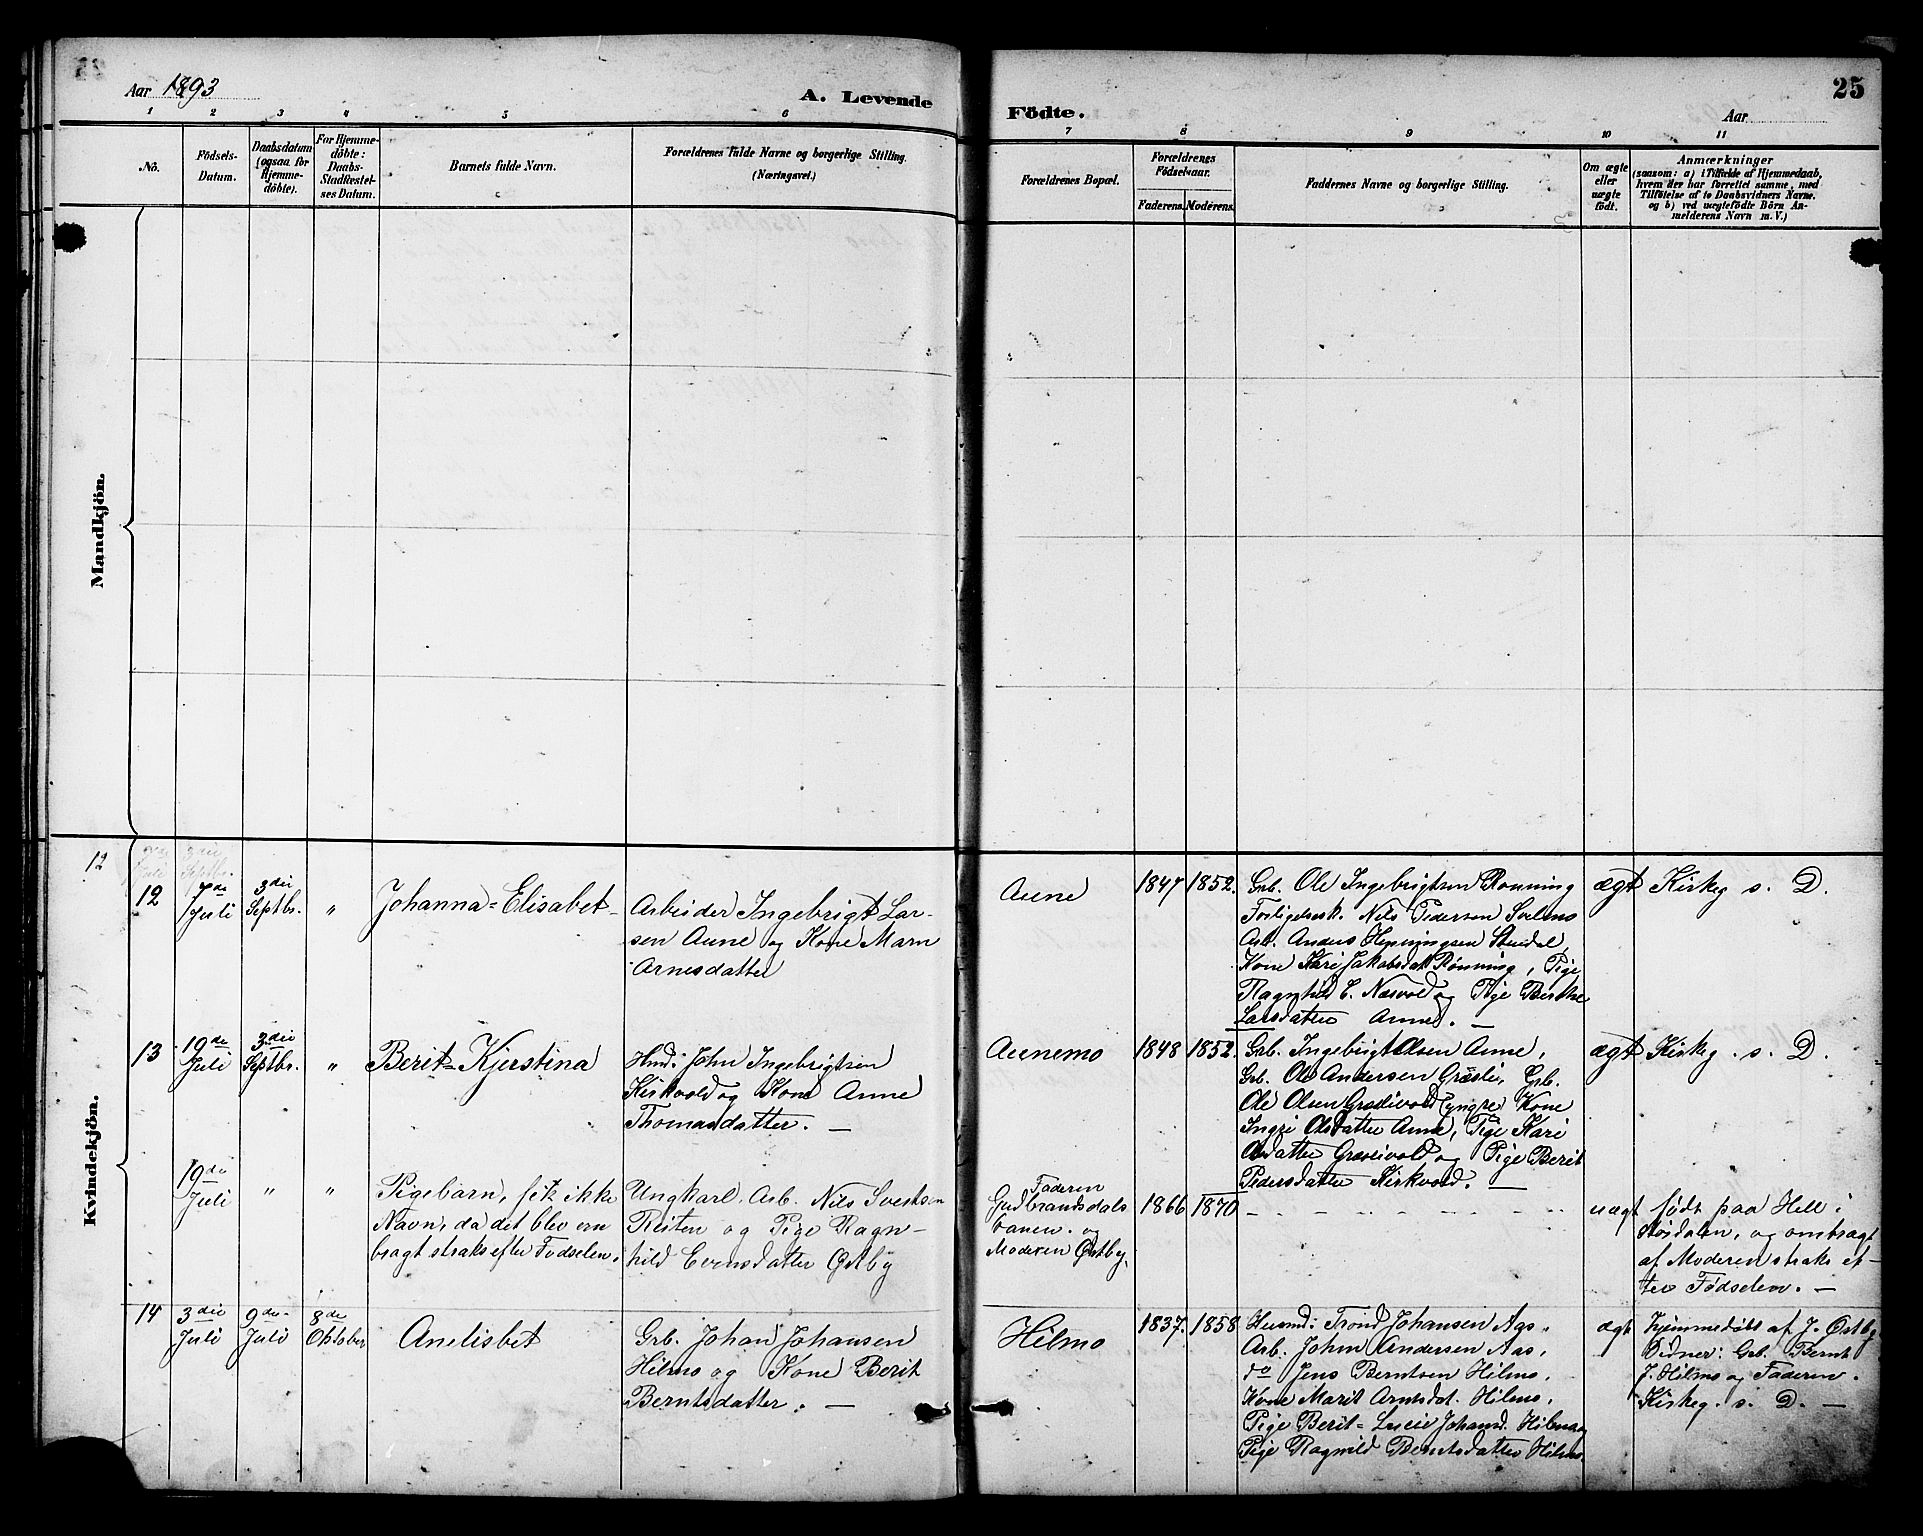 Aar 1893
A. Levende
Födte.
Aar
25
1
2
3
4
5
6
7
8
9
10
11
No.
Födsels-
Datum.
Daabsdatum
(ogsaa for
Hjemme-
döbte).
For Hjemme-
döbte:
Daabs-
Stadfæstel-
ses Datum.
Barnets fulde Navn.
Forældrenes fulde Navne og borgerlige Stilling.
(Næringsvei.)
Forældrenes Bopæl.
Forældrenes
Födselsaar.
Faderens.
Moderens.
Faddernes Navne og borgerlige Stilling.
Om ægte
eller
uægte
födt.
Anmærkninger
(saasom: a) i Tilfælde af Hjemmedaab,
hvem der har forrettet samme, med
Tilföielse af to Daabsvidners Navne.
og b) ved uægtefödte Börn An-
melderens Navn m. V.)
Mandkjön.
Kvindekjön.
12
12
7de
Juli
3die
Septbr.
"
Johanna=Elisabet
Arbeider Ingebrigt Lar-
sen Aune og Kone Marn
Arnesdatter
Aune
1847
1852.
Grb. Ole Ingebrigtsen Rønning
Nils Pedersen Svelmo
Arb. Anders Henningsen Stuedal,
Kone Kari Jakobsdat Rønning, Pige
Ragnhild E. Næsvold og Pige Berthe
Larsdatter Aune. —
ægt
Kirkeg s. D.
13
19de
Juli
3die
Septbr.
"
Berit=Kjerstina
Husd: John Ingebrigtsen
Kirkvold og Kone Anne
Thomasdatter. —
Aunemo
1848
1852.
Grb. Ingebrigt Olsen Aune,
Grb. Ole Andersen Græsli, Grb.
Ole Olsen Græslivold (yngre) Kone
Ingri Olsdatter Aune, Pige Kari
Olsdatter Græslivold og Pige Berit
Pedersdatter Kirkvold. —
ægt
Kirkeg. s. D.
19de
Juli
"
"
Pigebarn, fik ikke
Navn, da det blev om
bragt straks efter Fødselen.
Ungkarl Arb. Nils
Reiten og Pige Ragn-
hild Evensdatter Østby
Faderen
Gudbrandsdals
banen. og
Moderen Østby.
1866
1870
uægt
født paa Hell i
Størdalen, og ombragt
af Moderen straks ef-
ter Fødselen. —
14
3die
Juli
9de
Juli
8de
Oktober
Anelisbet
Grb. Johan Johansen
Hilmo og Kone Berit
Berntsdatter. —
Hilmo
1837.
1858
Husmd: Trond Johansen Aas,
Arb. John Andersen Aas,
do Jens Berntsen Hilmo,
Kone Marit Arntsdat. Hilmo,
Pige Berit= Lucie Johansd. Hilmo og
Pige Ragnild Berntsdatter Hilmo.
ægt
Hjemmedøbt af J. Østby
Vidner: Grb. Bernt
J. Hilmo og Faderen.
Kirkeg. s. D. —